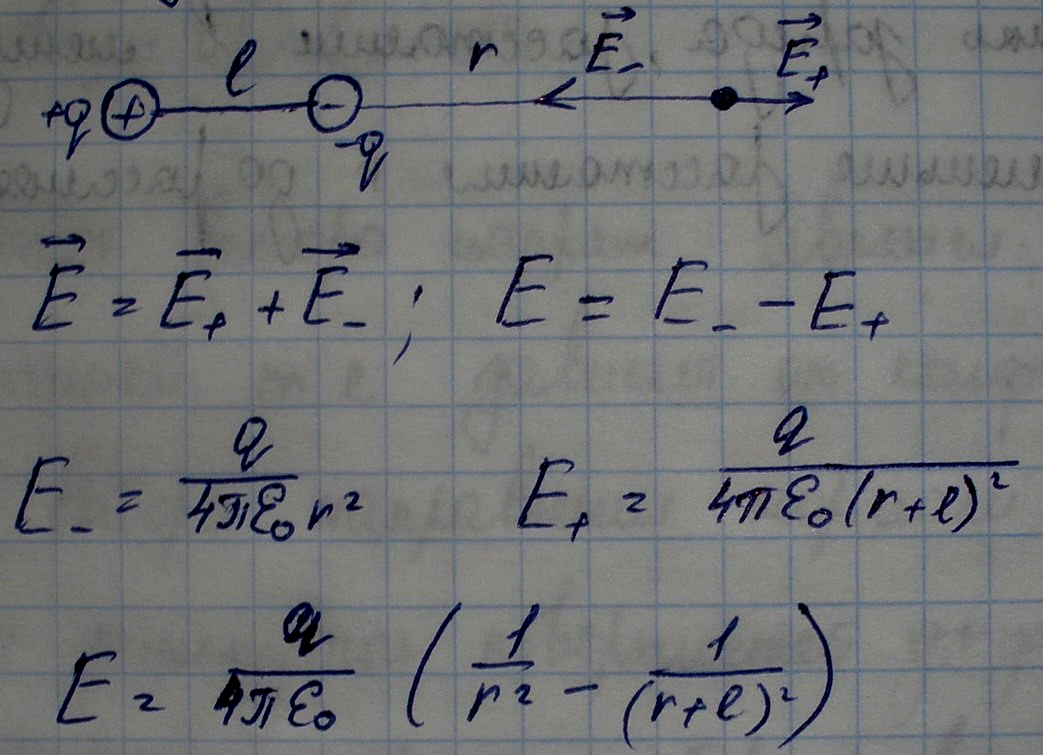 l r E⃗₋ E⃗₊
+q + - -q
E⃗ = E⃗₊ + E⃗₋ ; E = E₋ - E₊
E₋ = q/(4πε₀r²) E₊ = q/(4πε₀(r+l)²)
E = q/(4πε₀) (1/r² - 1/(r+l)²)